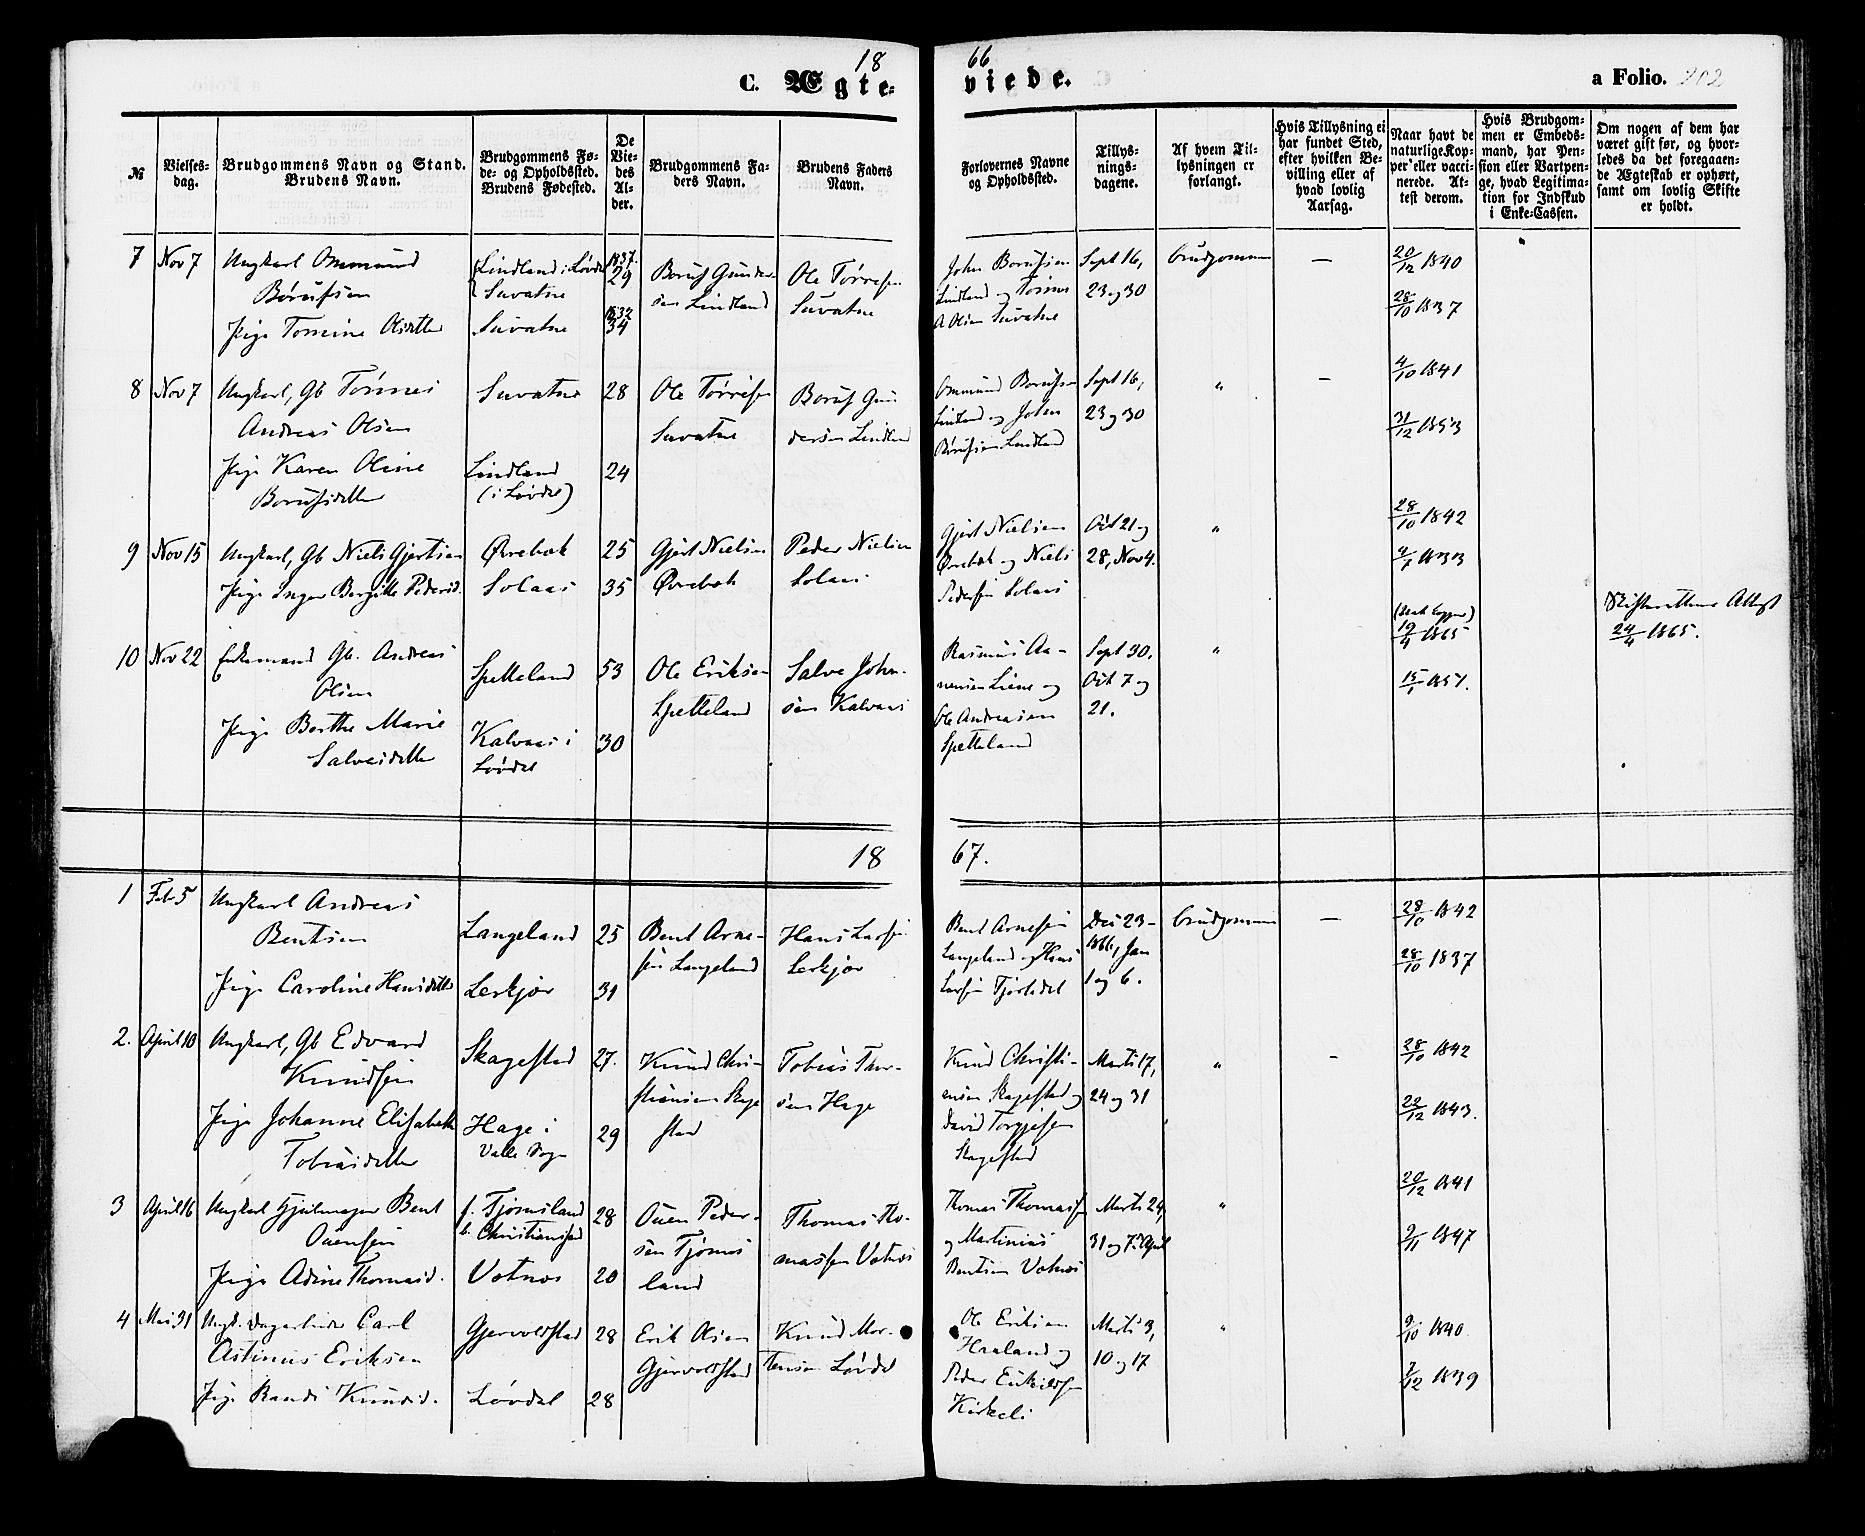 18 66
C. Ægte- viede. a Folio. 202
№
Vielses-
dag.
Brudgommens Navn og Stand.
Brudens Navn.
Brudgommens Fø-
de- og Opholdssted.
Brudens Fødested.
De
Vie-
des
Al-
der.
Brudgommens Fa-
ders Navn.
Brudens Faders
Navn.
Forlovernes Navne
og Opholdssted.
Tillys-
nings-
dagene.
Af hvem Til-
lysningen er
forlangt.
Hvis Tillysning ei
har fundet Sted,
efter hvilken Be-
villing eller af
hvad lovlig
Aarsag.
Naar havt de
naturlige Kop-
per eller vacci-
nerede. At-
test derom.
Hvis Brudgom-
men er Embeds-
mand, har Pen-
sion eller Vartpen-
ge, hvad Legitima-
tion for Indskud
i Enke-Cassen.
Om nogen af dem har
været gift før, og hvor-
ledes da det foregaaen-
de Ægteskab er ophørt,
samt om lovlig Skifte
er holdt.
7 Nov 7 Ungkarl Ommund
Børufsen
Pige Tomine Olsdatter
Lindland i Løvdal
Suvatne
Suvatne
1837
29
1832
34
Boruf Gunder-
sen Lindland
Ole Tørresen
Suvatne
John Børufsen
Lindland og Tønnes
A Olsen Suvatne
Sept 16,
23 og 30
brudgommen
—
20/12 1840
28/10 1837
8 Nov 7 Ungkarl, Gb Tønnes
Andreas Olsen
Pige Karen Oline
Borufsdatter
Suvatne
Lindland
(i Løvdal)
28
24
Ole Tørresen
Suvatne
Boruf Gun-
dersen Lindland
Ommund Borufsen
Lindland og John
Børufsen Lindland
Sept 16,
23 og 30
"
—
4/10 1841
31/12 1853
9 Nov 15 Ungkarl, Gb Niels Gjertsen
Pige Inger Bergitte Pedersd.
Øvrebøk
Solaas
25
35
Gjert Nielsen
Øvrebøk
Peder Nielsen
Solaas
Gjert Nielsen
Øvrebøk og Niels
Pedersen Solaas
Oct 21 og
28, Nov 4.
"
28/10 1842
4/7 1833
10 Nov 22 Enkemand Gb. Andreas
Olsen
Pige Berthe Marie
Salvesdatter
Spetteland
Kalvaas i
Løvdal
53
30
Ole Eriksen
Spetteland
Salve John-
sen Kalvaas
Rasmus Aa-
nensen Liene og
Ole Andreasen
Spetteland
Sept 30.
Oct 7 og
21.
"
19/4 1865
15/1 1851.
Skifterettens Attest
24/4 1865.
18 67.
1 Feb 5 Ungkarl Andreas
Bentsen
Pige Caroline Hansdatter
Langeland
Lerkjør
25
31
Bent Arne-
sen Langeland
Hans Larsen
Lerkjør
Bent Arnesen
Langeland og Hans
Larsen Tjørledal
Dec 23 -
1866, Jan
1 og 6.
brudgommen
—
28/10 1842
28/10 1837
2. April 10 Ungkarl, Gb Edvard
Knudsen
Pige Johanne Elisabeth
Tobiasdatter
Skagestad
Hage i
Valle Sogn
27.
29
Knud Chri-
stiansen Skage-
stad
Tobias Thor-
sen Hage
Knud Christi-
ansen Skagestad og
David Torgjesen
Skagestad
Marts 17,
24 og 31
"
-
28/10 1842
22/12 1843.
3 April 16 Ungkarl Hjulmager Bent
Ouensen
Pige Adine Thomasd.
f. Tjømsland
b. Christiansand
Votnøs
28
20
Ouen Peder-
sen Tjøms-
land
Thomas Tho-
massen Votnøs
Thomas Thomassen
og Martinius
Bentsen Votnøs
Marts 24,
31 og 7. April
"
20/12 1841
2/11 1847
4 Mai 31 Ungk. Dagarbeider Carl
Astinus Eriksen
Pige Randi Knudsd.
Gjervoldstad
Løvdal
28
28
Erik Olsen
Gjervoldstad
Knud Mor-
tensen Løvdal
Ole Eriksen
Haaland og
Peder Eriksen
Kirkeli
Marts 3,
10 og 17
"
9/10 1840
7/12 1839